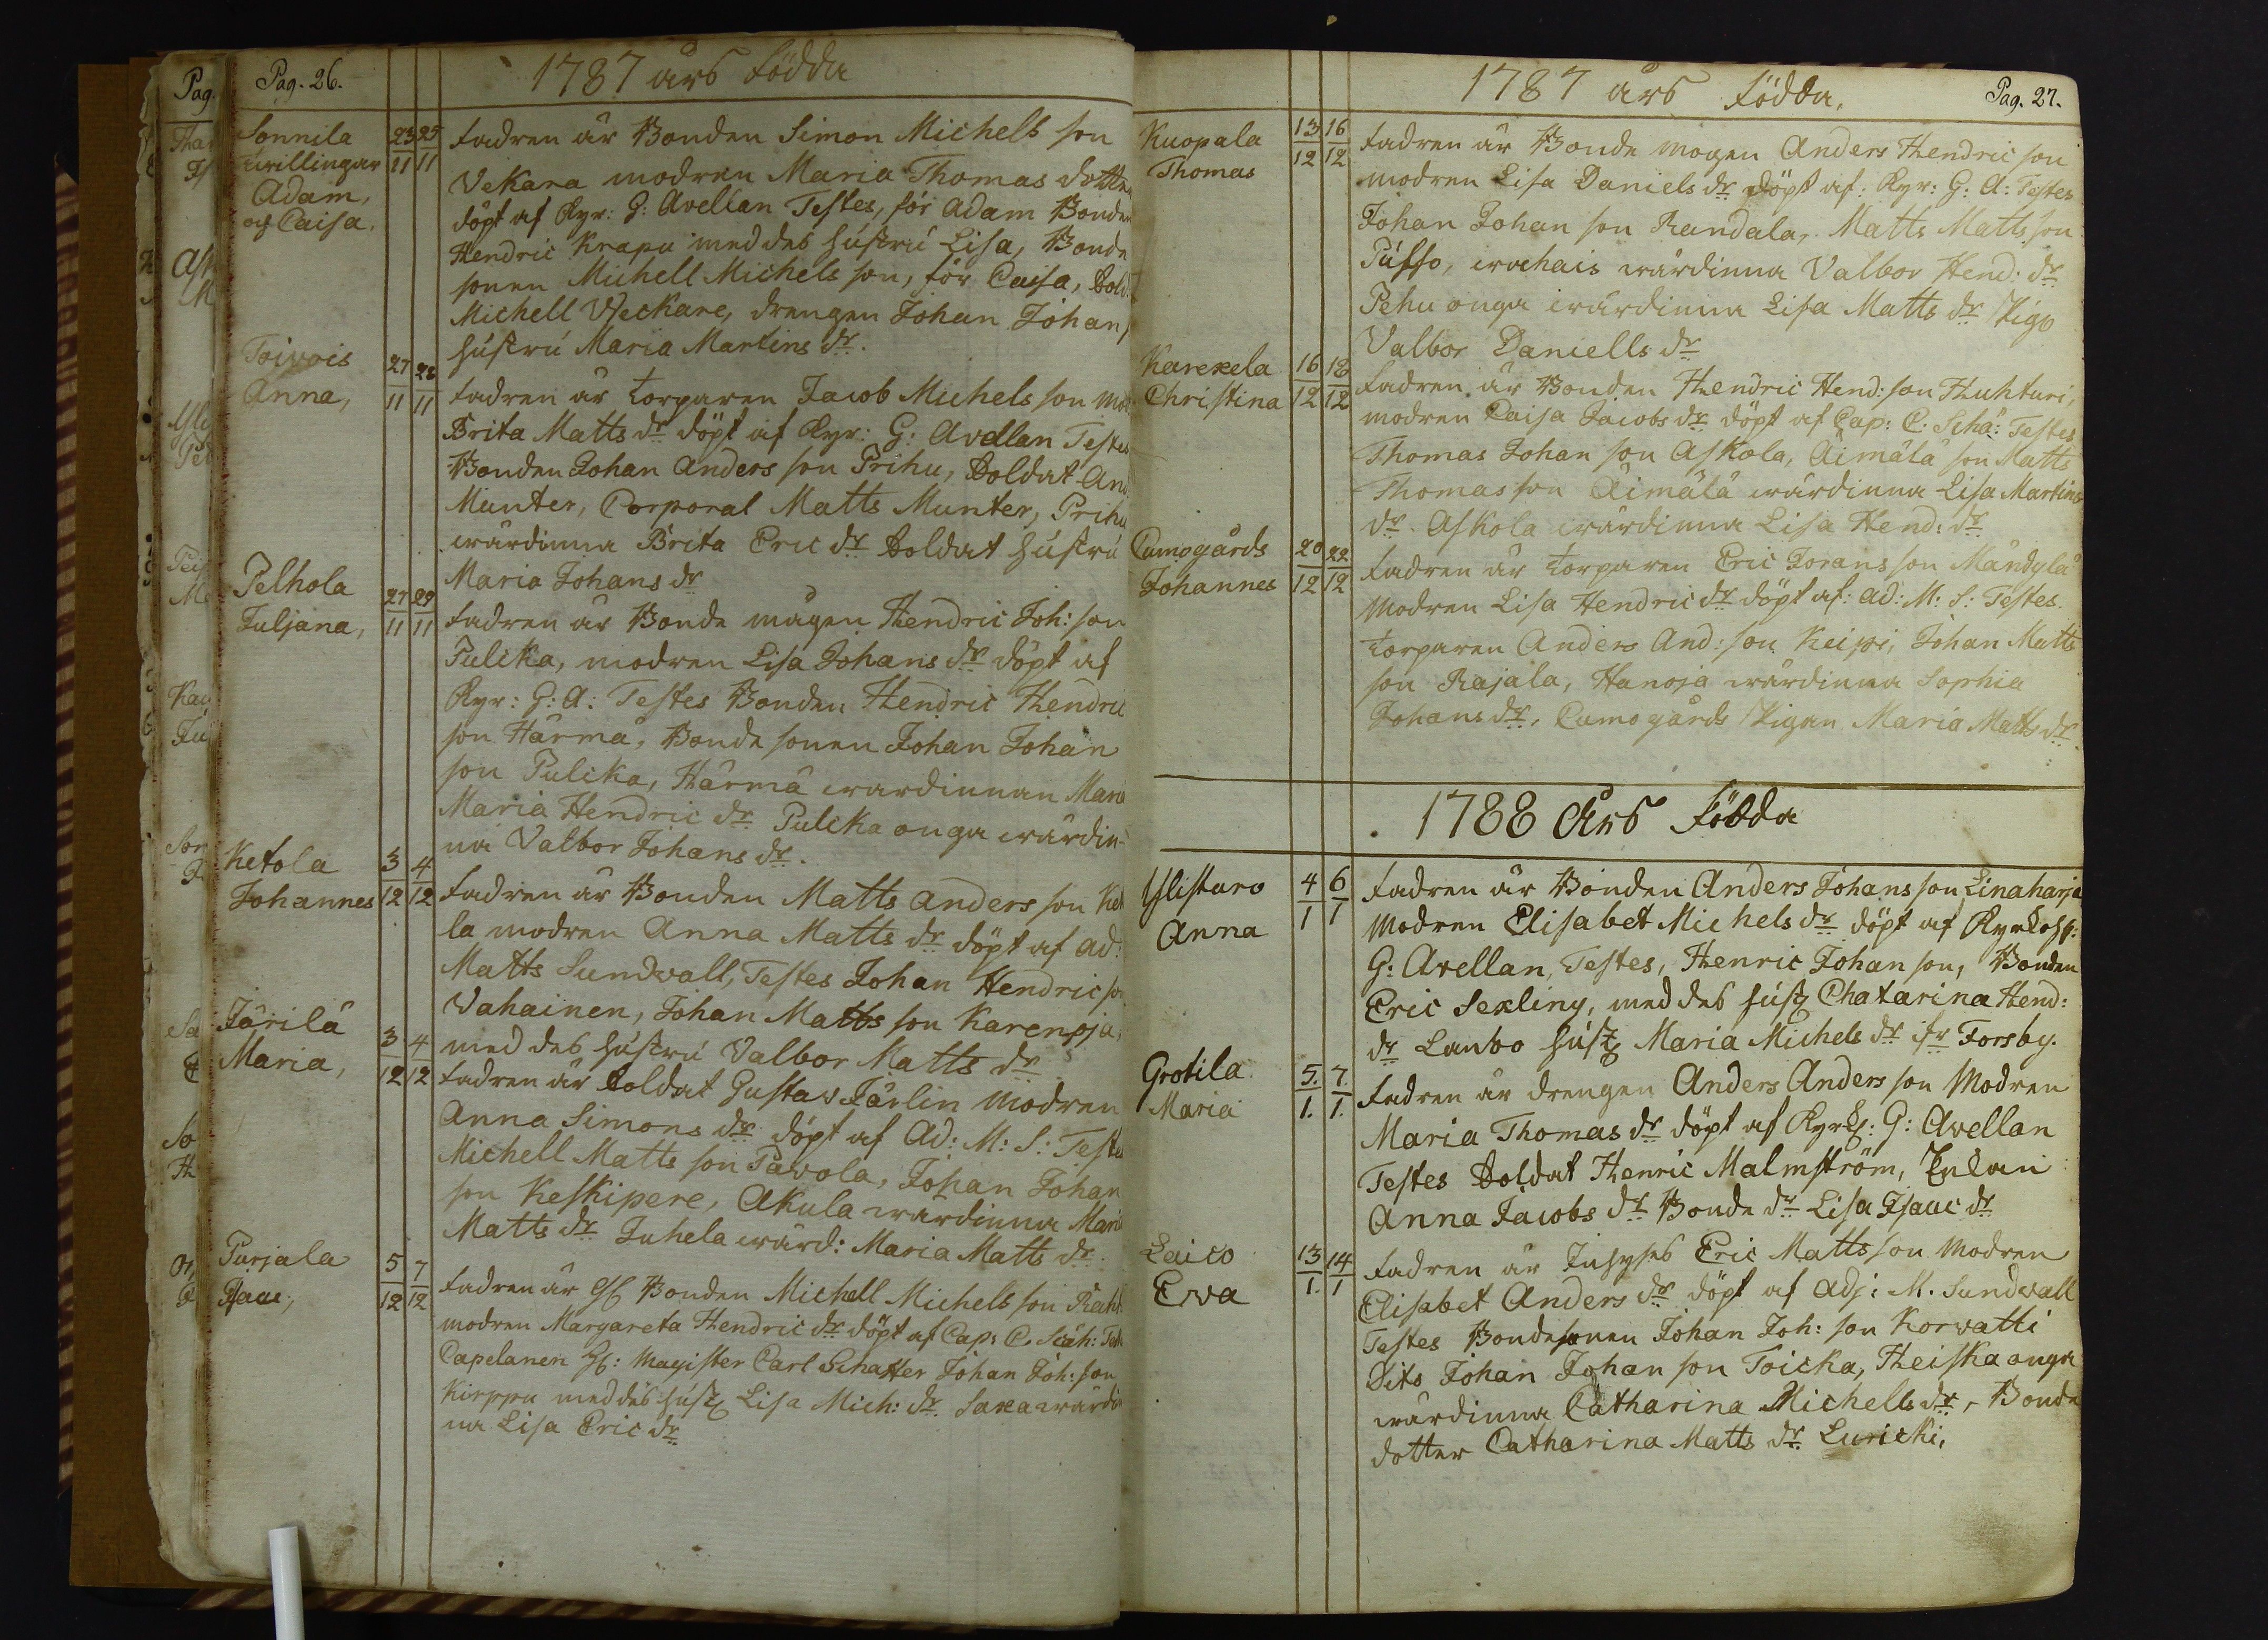 Pag. 26.
1787 års Födda
Sonnila
twillingar
Adam,
och Caisa.
23 25
11 11
Fadren är Bonden Simon Michels son
Vekara modren Maria Thomas dotter
döpt af Kyr: G: Avellan Testes, för Adam Bonden
Hendric Krapu med des hustru Lisa, Bonde
sonen Michell Michels son, för Caisa, Sold.
Michell Weckare, drengen Johan Johan
hustru Maria Martins dr.
Toivois
Anna,
27 28
11 11
Fadren är torparen Jacob Michels son mod
Brita Matts dr döpt af Kyr: G: Avellan Testes
Bonden Johan Anders son Prihu, Soldat And
Munter, Corporal Matts Munter, Prihu
wärdinna Brita Eric dr Soldat hustru
Maria Johans dr
Pelhola
Juljana,
27 29
11 11
Fadren är Bonde mågen Hendric Joh: son
Pulcka, modren Lisa Johans dr döpt af
Kyr: G: A: Testes Bonden Hendric Hendric
son Härmä, Bonde sonen Johan Johan
son Pulcka, Härmä wärdinnan Maria
Maria Hendric dr Pulcka onga wärdin-
na Valbor Johans dr.
Ketola
Johannes
3 4
12 12
Fadren är Bonden Matts Anders son Ket
la modren Anna Matts dr döpt af ad:
Matts Sundvall, Testes Johan Hendric son
Vahainen, Johan Matts son Karenoja,
med des hustru Valbor Matts dr
Järilä
Maria,
3 4
12 12
Fadren är Soldat Gustav Järlin modren
Anna Simons dr döpt af Ad: M: S: Testes
Michell Matts son Pavola, Johan Johan
son Keskipere, Akula wärdinna Maria
Matts dr Juhela wärd: Maria Matts dr.
Purjala
Isaac,
5 7
12 12
Fadren är Bonden Michell Michels son
modren Margareta Hendric dr döpt af Cap: C. Scäh: Test
Capelanen H: Magister Carl Schatter Johan Joh: son
Kirppu med des hust Lisa Mich: dr Saxa wärdin
na Lisa Eric dr
1787 års Födda.
Pag. 27.
Kuopala
Thomas
13 16
12 12
Fadren är Bonde mogen Anders Hendric son
modren Lisa Daniels dr döpt af: Kyr: G: A: Testes
Johan Johan son Randala, Matts Matts son
Pusso, wärdinna Valbor Hend: dr
Pehu onga wärdinna Lisa Matts dr Pigo
Valbor Daniells dr
Karexela
Christina
16 18
12 12
Fadren är Bonden Hendric Hend: son Huhturi,
modren Caisa Jacobs dr döpt af Cap: C: Schä: Testes
Thomas Johan son Askola, Äimälä son Matts
Thomas son Äimälä wärdinna Lisa Martins
dr. Askola wärdinna Lisa Hend: dr
Cumogårds
Johannes
20 22
12 12
Fadren är torparen Eric Jorans son Mändylä
Modren Lisa Hendric dr döpt af: ad: M: S: Testes.
Torparen Anders And: son Keipi, Johan Matts
son Rajala, Hanoja wärdinna Sophia
Johans dr, Cumogårds Pigan Maria Matts dr.
1788 Års Födda
Ylistaro
Anna
4 6
1 1
Fadren är Bonden Anders Johans son Linaharja
Modren Elisabet Michels dr döpt af Kyrkohr:
G: Avellan, Testes, Henric Johan son, Bonden
Eric Sexling, med des hust Chatarina Hend:
dr Lanbo hust Maria Michels dr ifr Forsby.
Grotila
Maria
5. 7.
1. 1.
Fadren är drengen Anders Anders son Modren
Maria Thomas dr döpt af Kyrk: G: Avellan
Testes Soldat Henric Malmström, Enkan
Anna Jacobs dr Bonde dr Lisa Isaac dr
Laico
Ewa
13 14
1. 1
Fadren är Eric Matts son Modren
Elisabet Anders dr döpt af Adj: M. Sundvall
Testes Bondesonen Johan Joh: son Korvatti
Dito Johan Johan son Toicka, Heiska onga
wärdinna Catharina Michells dr, Bonde
dotter Catharina Matts dr Luricki,